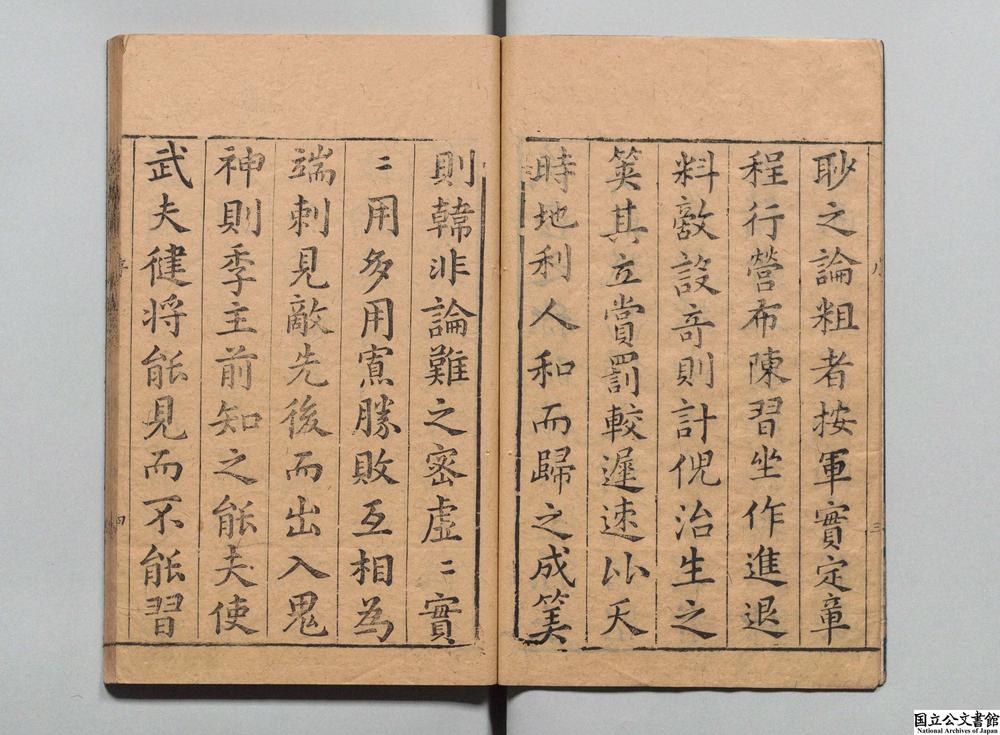 眇之論粗者按軍實定章
程行營布陳習坐作進退
料敵設奇則計倪治生之
筴其立賞罰較遲速以天
時地利人和而歸之成筭
則韓非論難之密虛〻實
〻用多用寡勝敗互相為
端刺見敵先後而出入鬼
神則季主前知之能夫使
武夫健将能見而不能習
三
序
四
国立公文書館
National Archives of Japan